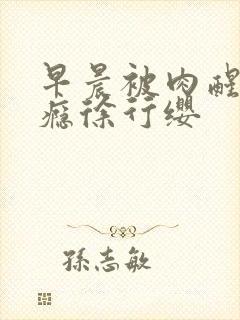 早晨被肉醒
瘾徐行缨
孫志敏